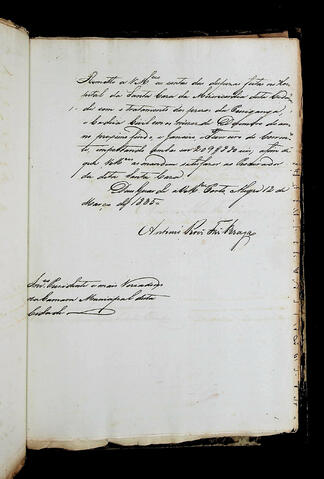 Remetto a VMces a conta das despezas feitas no Hos-
pital da Santa Casa da Misericordia desta Cida-
de com o tratamento dos prezos da
e Cadêa Civil nos mezes de Dezembro do an-
no proximo findo, e Janeiro e Fevereiro do corren-
te, importando tudo em 209$230 reis, afim de
que VMces mandem satisfazer ao Procurador
da dita Santa Casa.
Deos Guarde a VMces Porto Alegre 12 de
Março de 1835.
Antonio Roiz Frz Braga
Snres Presidente e mais Vereadores
da Camara Municipal desta
Cidade